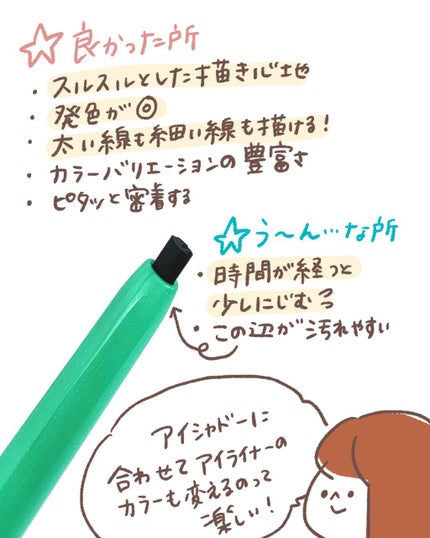 ☆良かった所
・スルスルとした描き心地
・発色が◎
・太い線も細い線も描ける!
・カラーバリエーションの豊富さ
・ピタッと密着する
☆う〜ん…な所
・時間が経つと
少しにじむ
・この辺が汚れやすい
アイシャドーに
合わせてアイライナーの
カラーも変えるのって
楽しい!